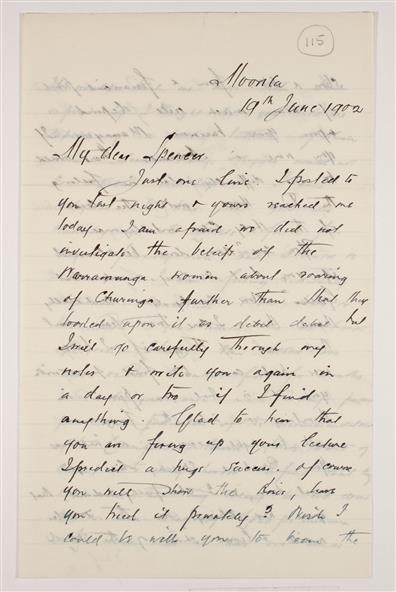 115
Moonta
19th June 1902
My dear Spencer.
Just one line. I posted to
you last night & yours reached me
today. I am afraid we did not
investigate the beliefs of the
Warramunga women about soaring
of Churinga further than that they
looked upon it as debil debil but
I will go carefully through my
notes & write you again in
a day or two if I find
anything. Glad to hear that
you are fixing up your lecture
I predict a huge success. Of course
you will show the Kinos, have
you tried it privately? Wish I
could be with you to the